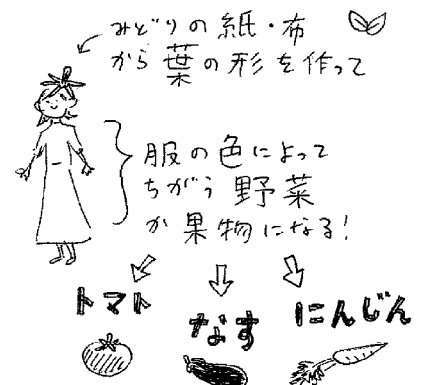 みどりの紙・布
から葉の形を作って
服の色によって
ちがう野菜
か果物になる!
トマト
なす
にんじん